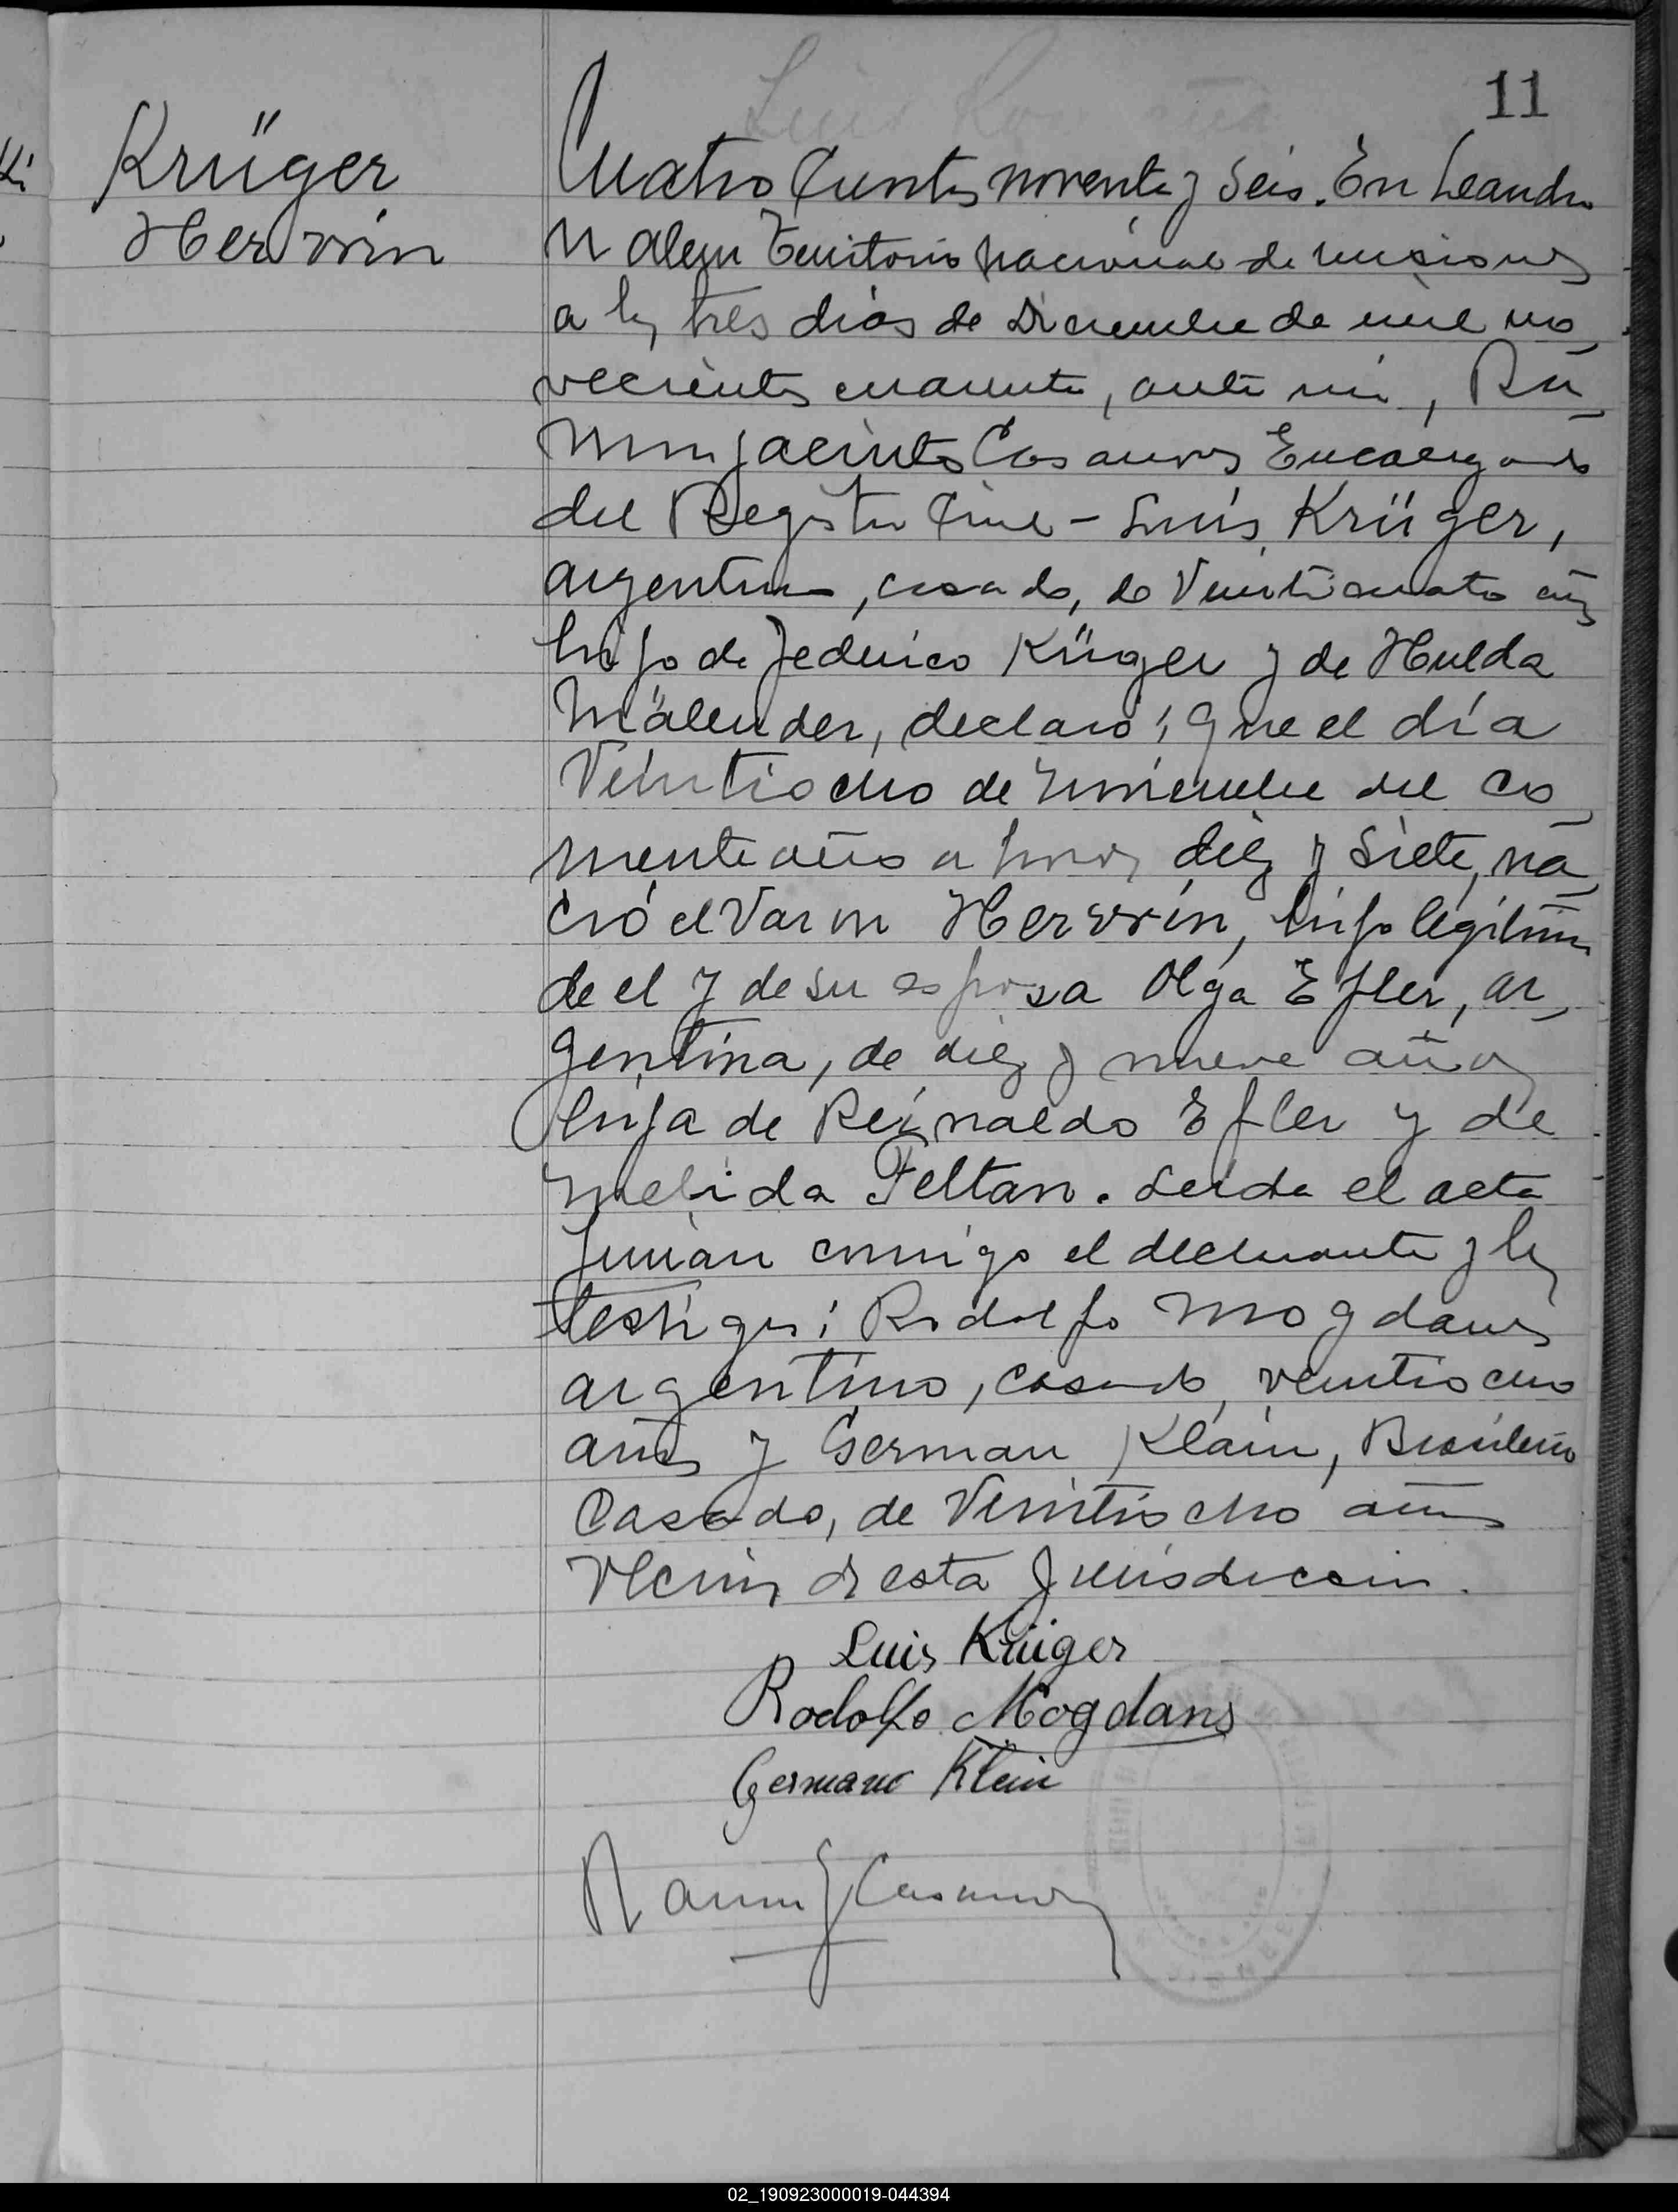 11
Krüger
Herwin
Cuatro Cientos noventa y Seis. En Leandro
N Alem Territorio Nacional de Misiones
a los tres dias de Diciembre de mil no
vecientos cuarenta, ante mi, Ra
mon Jacinto Casanova Encargado
del Registro Civil - Luis Krüger,
argentino, casado, de Veinticuatro años
hijo de Federico Krüger y de Hulda
Mälender, declaró; Que el día
Veintiocho de Noviembre del co
rriente año a horas diez y siete, na
ció el Varon Herwin, hijo legítimo
de el y de su esposa Olga Efler, ar
gentina, de diez y nueve años
hija de Reinaldo Efler y de
Melida Feltan. Leida el acta
firman conmigo el declarante y los
testigos; Rodolfo Mogdans
argentino, casado, veintiocho
años y German Klain, Brasileño
Casado, de Veintiocho años
Vecinos de esta Jurisdiccion.
Luis Krüger
Rodolfo Mogdans
Germano Klein
Ramon J Casanova
02_190923000019-044394